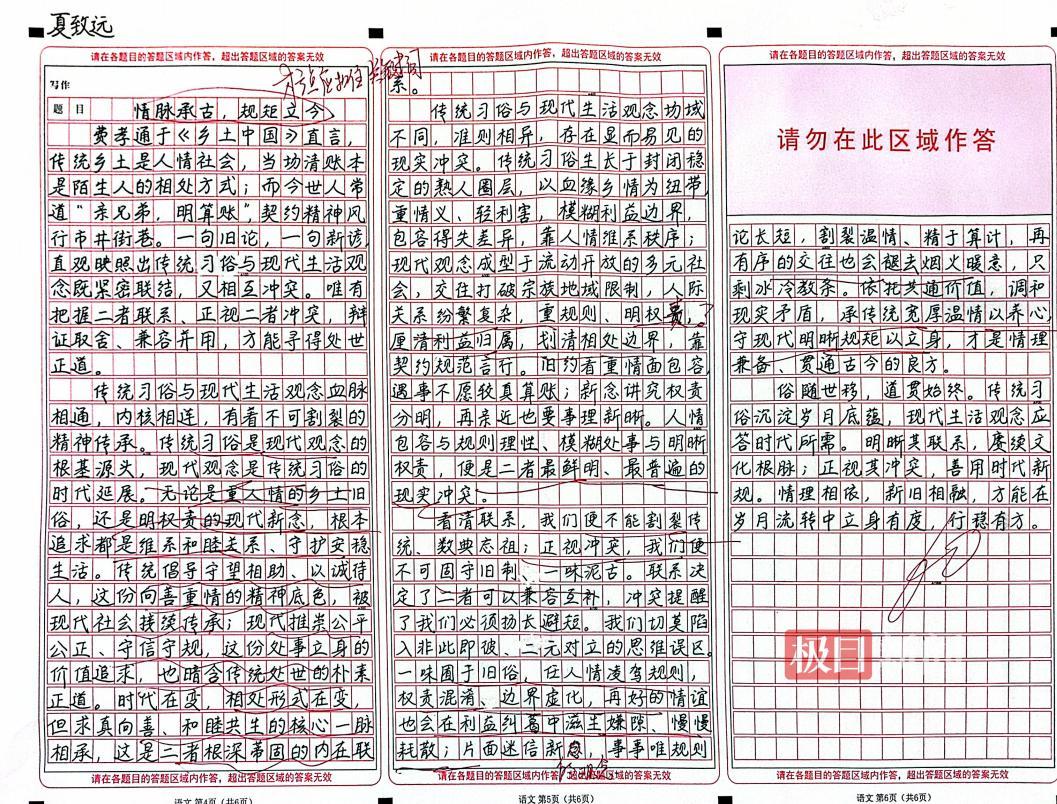 夏致远
请在各题目的答题区域内作答，超出答题区域的答案无效
写作
题目 情脉承古，规矩立今
费孝通于《乡土中国》直言，
传统乡土是人情社会，当场清账本
是陌生人的相处方式；而今世人常
道“亲兄弟，明算账”，契约精神风
行市井街巷。一句旧论，一句新谚，
直观映照出传统习俗与现代生活观
念既紧密联结，又相互冲突。唯有
把握二者联系、正视二者冲突，辩
证取舍、兼容并用，才能寻得处世
正道。
传统习俗与现代生活观念血脉
相通，内核相连，有着不可割裂的
精神传承。传统习俗是现代观念的
根基源头，现代观念是传统习俗的
时代延展。无论是重人情的乡土旧
俗，还是明权责的现代新念，根本
追求都是维系和睦关系、守护安稳
生活。传统倡导守望相助、以诚待
人，这份向善重情的精神底色，被
现代社会接续传承；现代推崇公平
公正、守信守规，这份处事立身的
价值追求，也暗含传统处世的朴素
正道。时代在变，相处形式在变，
但求真向善、和睦共生的核心一脉
相承，这是二者根深蒂固的内在联
请在各题目的答题区域内作答，超出答题区域的答案无效
语文 第4页（共6页）
请在各题目的答题区域内作答，超出答题区域的答案无效
系。
传统习俗与现代生活观念场域
不同，准则相异，存在显而易见的
现实冲突。传统习俗生长于封闭稳
定的熟人圈层，以血缘乡情为纽带，
重情义、轻利害，模糊利益边界，
包容得失差异，靠人情维系秩序；
现代观念成型于流动开放的多元社
会，交往打破宗族地域限制，人际
关系纷繁复杂，重规则、明权责，
厘清利益归属，划清相处边界，靠
契约规范言行。旧约看重情面包容，
遇事不愿较真算账；新念讲究权责
分明，再亲近也要事理新晰。人情
包容与规则理性、模糊处事与明晰
权责，便是二者最鲜明、最普遍的
现实冲突。
看清联系，我们便不能割裂传
统、数典忘祖；正视冲突，我们便
不可固守旧制、一味泥古。联系决
定了二者可以兼容互补，冲突提醒
了我们必须扬长避短。我们切莫陷
入非此即彼、二元对立的思维误区。
一味囿于旧俗，任人情凌驾规则，
权责混淆、边界虚化，再好的情谊
也会在利益纠葛中滋生嫌隙、慢慢
耗散；片面迷信新，事事唯规则
请在各题目的答题区域内作答，超出答题区域的答案无效
语文 第5页（共6页）
请在各题目的答题区域内作答，超出答题区域的答案无效
请勿在此区域作答
论长短，割裂温情、精于算计，再
有序的交往也会褪去烟火暖意，只
剩冰冷教条。依托共通价值，调和
现实矛盾，承传统宽厚温情以养心，
守现代明晰规矩以立身，才是情理
兼备、贯通古今的良方。
俗随世移，道贯始终。传统习
俗沉淀岁月底蕴，现代生活观念应
答时代所需。明晰其联系，赓续文
化根脉；正视其冲突，善用时代新
规。情理相依，新旧相融，才能在
岁月流转中立身有度，行稳有方。
极目
请在各题目的答题区域内作答，超出答题区域的答案无效
语文 第6页（共6页）